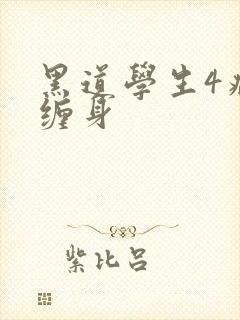 黑道學生4病
缠身
紫比呂